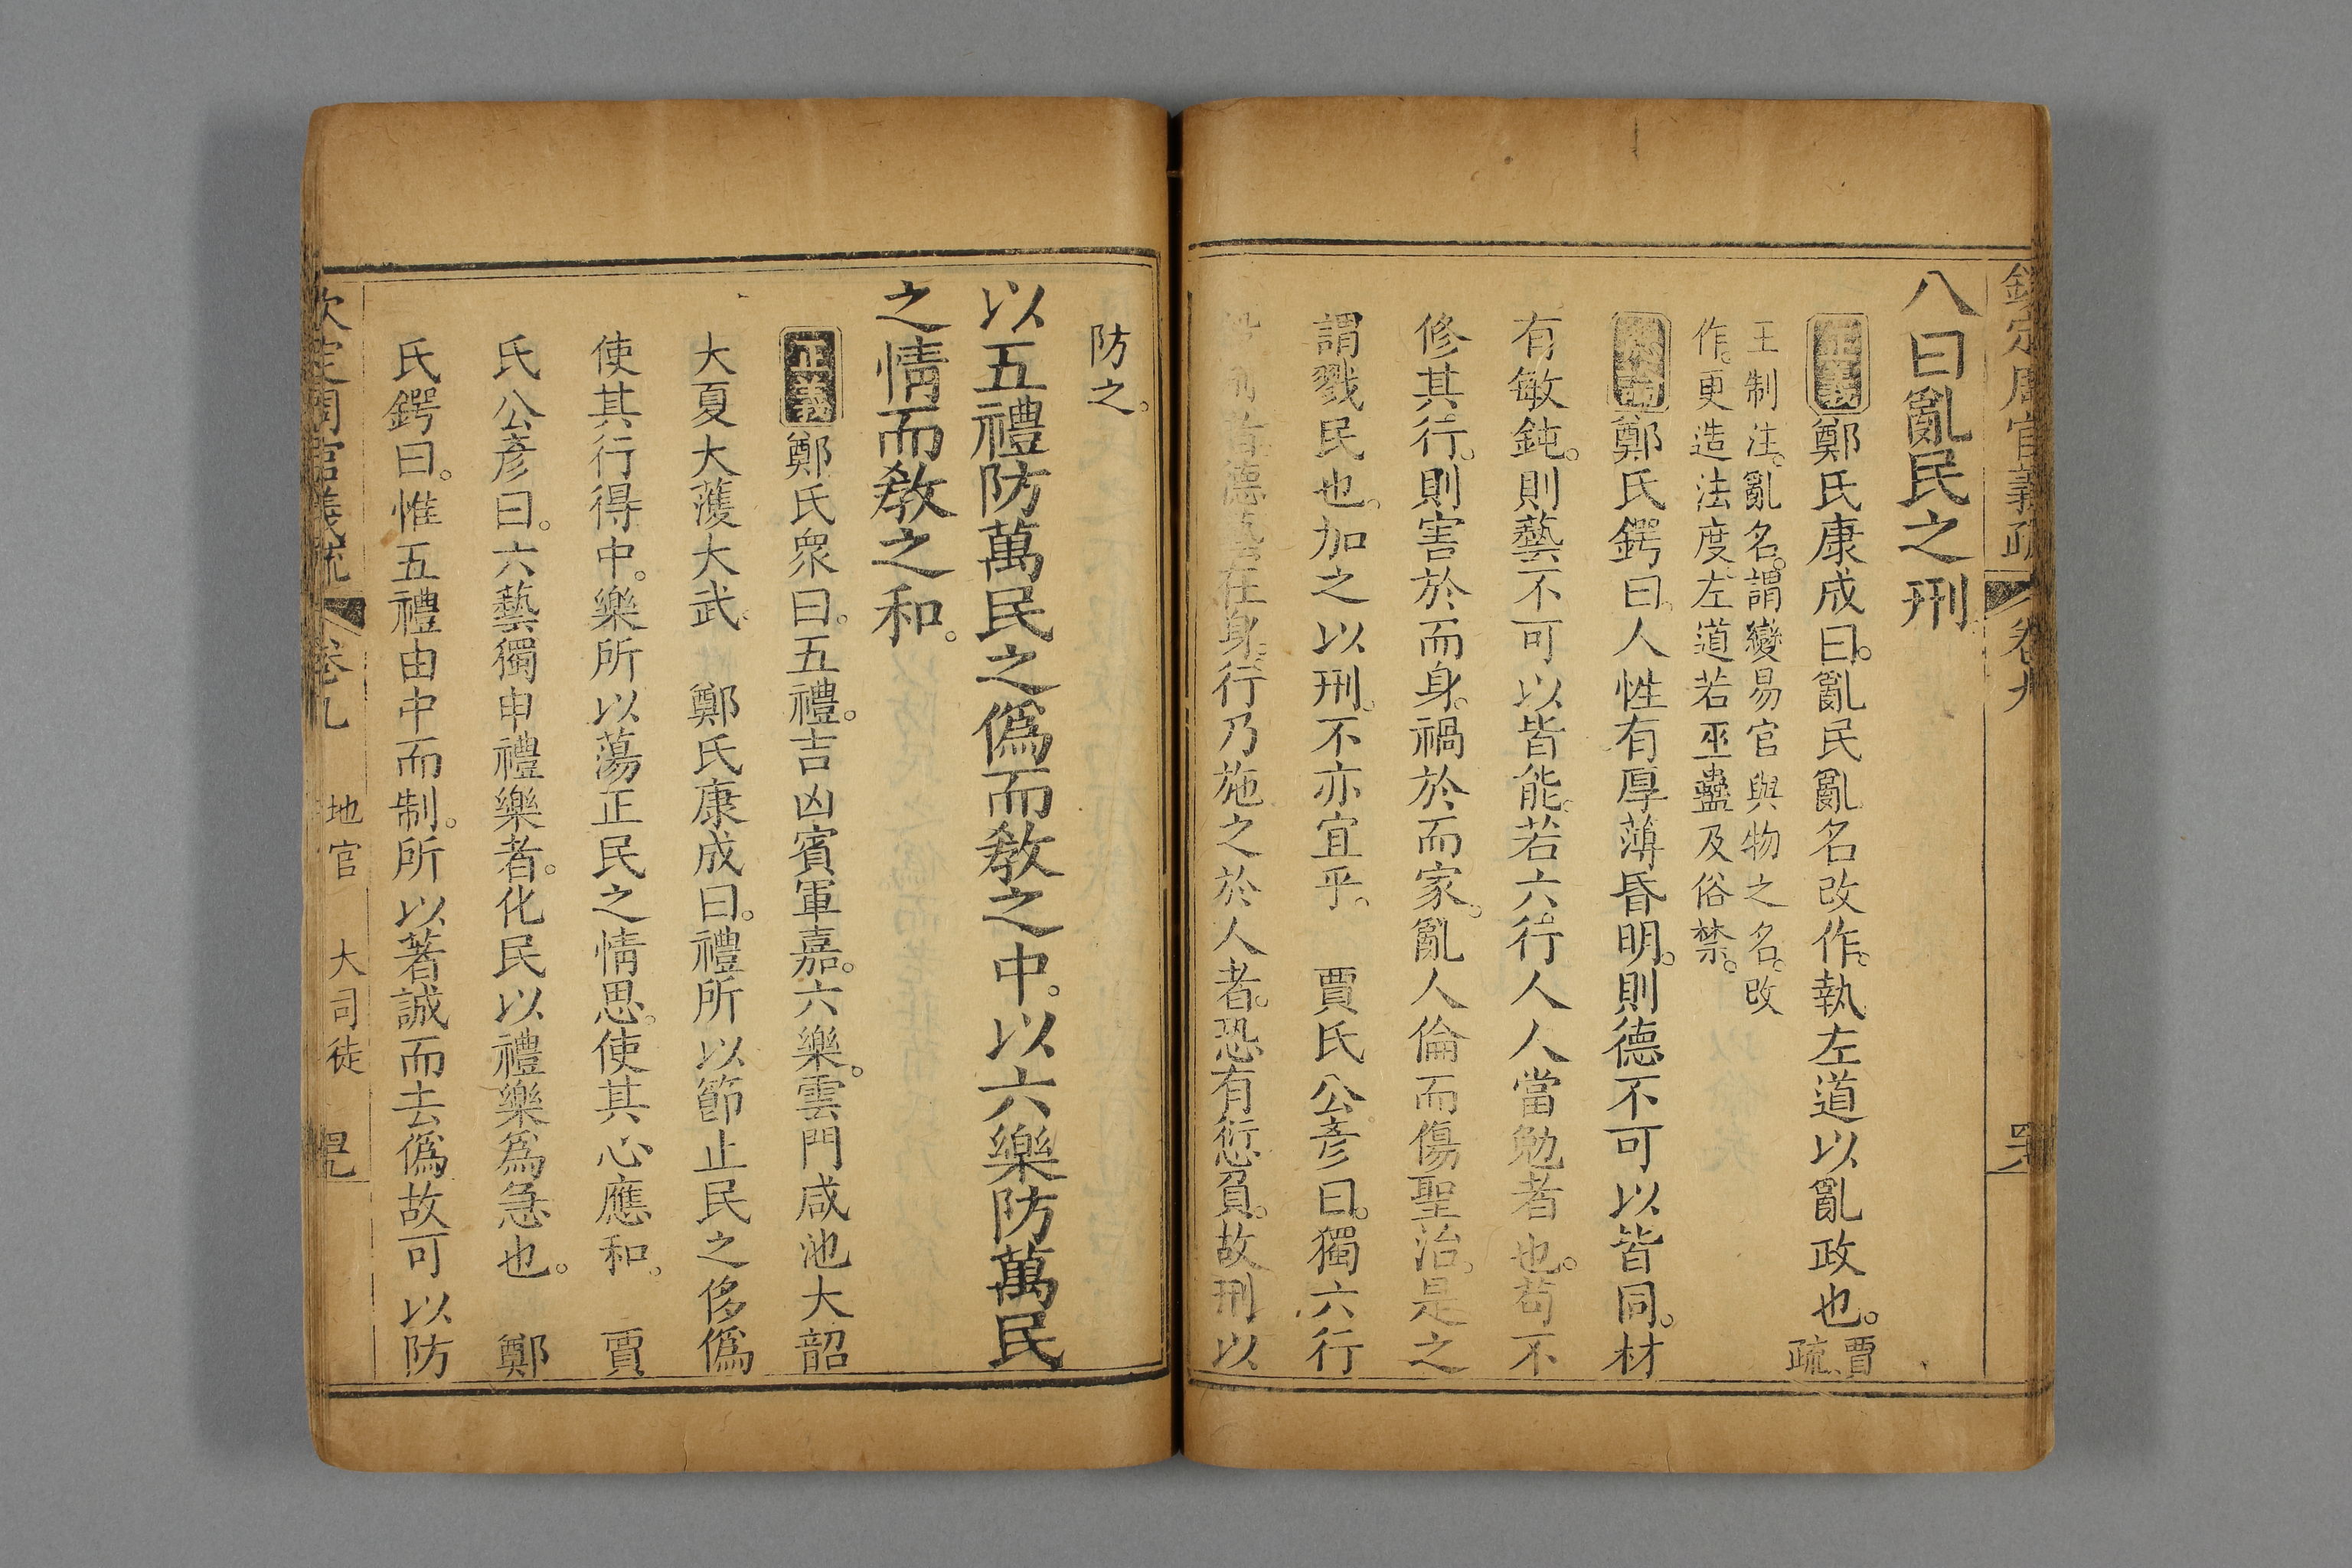 欽定周官義疏 卷九
八曰亂民之刑
正義鄭氏康成曰。亂民亂名改作。執左道以亂政也。賈疏、
王制注。亂名。謂變易官與物之名。改
作。更造法度左道若巫蠱及俗禁。
總論鄭氏鍔曰。人性有厚薄昏明。則德不可以皆同。材
有敏鈍。則藝不可以皆能。若六行人人當勉者也。苟不
修其行。則害於而身。禍於而家。亂人倫而傷聖治。是之
謂戮民也。加之以刑。不亦宜乎。 賈氏公彥曰。獨六行
德藝在身。行乃施之於人者。恐有愆負。故刑以
防之。
以五禮防萬民之僞而敎之中。以六樂防萬民
之情而敎之和。
正義鄭氏衆曰。五禮。吉凶賓軍嘉。六樂。雲門咸池大韶
大夏大濩大武。 鄭氏康成曰。禮所以節止民之侈僞
使其行得中。樂所以蕩正民之情思。使其心應和。 賈
氏公彥曰。六藝獨申禮樂者。化民以禮樂爲急也。 鄭
氏鍔曰。惟五禮由中而制。所以著誠而去僞故可以防
欽定周官義疏 卷九 地官 大司徒